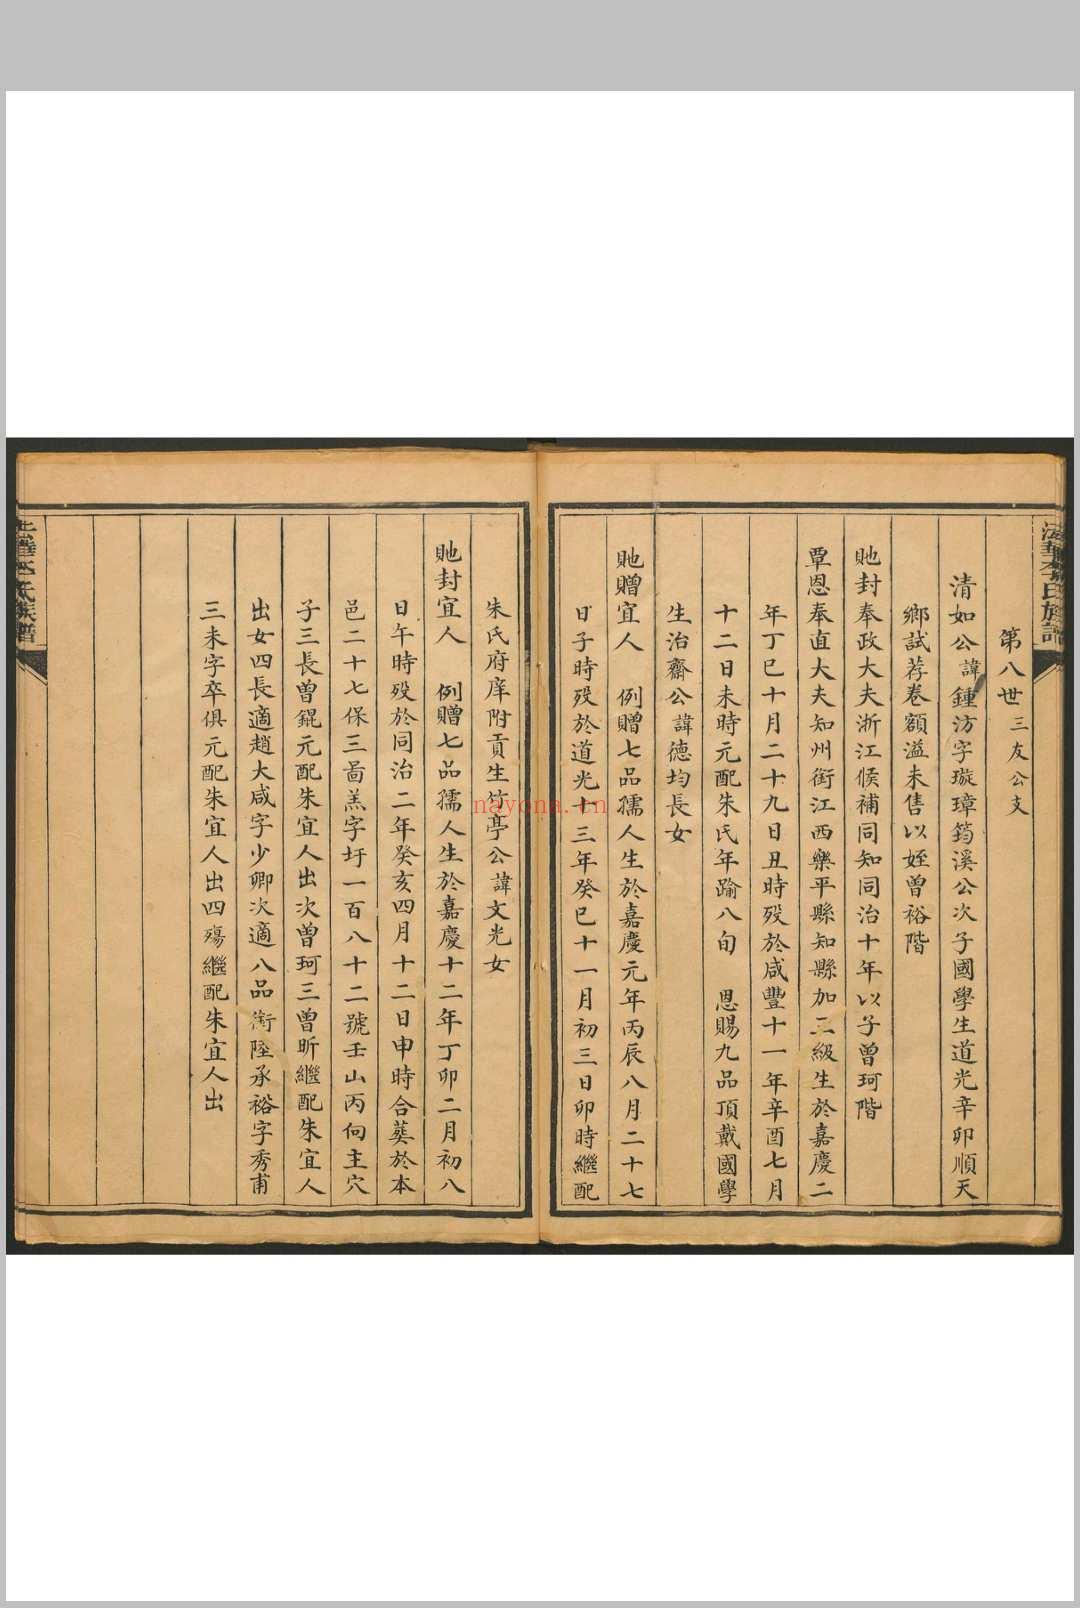 第八世三友公支
清如公諱鍾汸字璇璋筠溪公次子國學生道光辛卯順天
鄉試荐卷額溢未售以姪曾裕階
貤封奉政大夫浙江候補同知同治十年以子曾珂階
覃恩奉直大夫知州銜江西樂平縣知縣加二級生於嘉慶二
年丁巳十月二十九日丑時歿於咸豐十一年辛酉七月
十二日未時元配朱氏年踰八旬 恩賜九品頂戴國學
生治齋公諱德均長女
貤贈宜人 例贈七品孺人生於嘉慶元年丙辰八月二十七
日子時歿於道光十三年癸巳十一月初三日卯時繼配
朱氏府庠附貢生竹亭公諱文光女
貤封宜人 例贈七品孺人生於嘉慶十二年丁卯二月初八
日午時歿於同治二年癸亥四月十二日申時合葬於本
邑二十七保三啚羔字圩一百八十二號壬山丙向主穴
子三長曾錕元配朱宜人出次曾珂三曾昕繼配朱宜人
出女四長適趙大咸字少卿次適八品銜陸承裕字秀甫
三未字卒俱元配朱宜人出四殤繼配朱宜人出
法華李氏族譜
nayona.cn